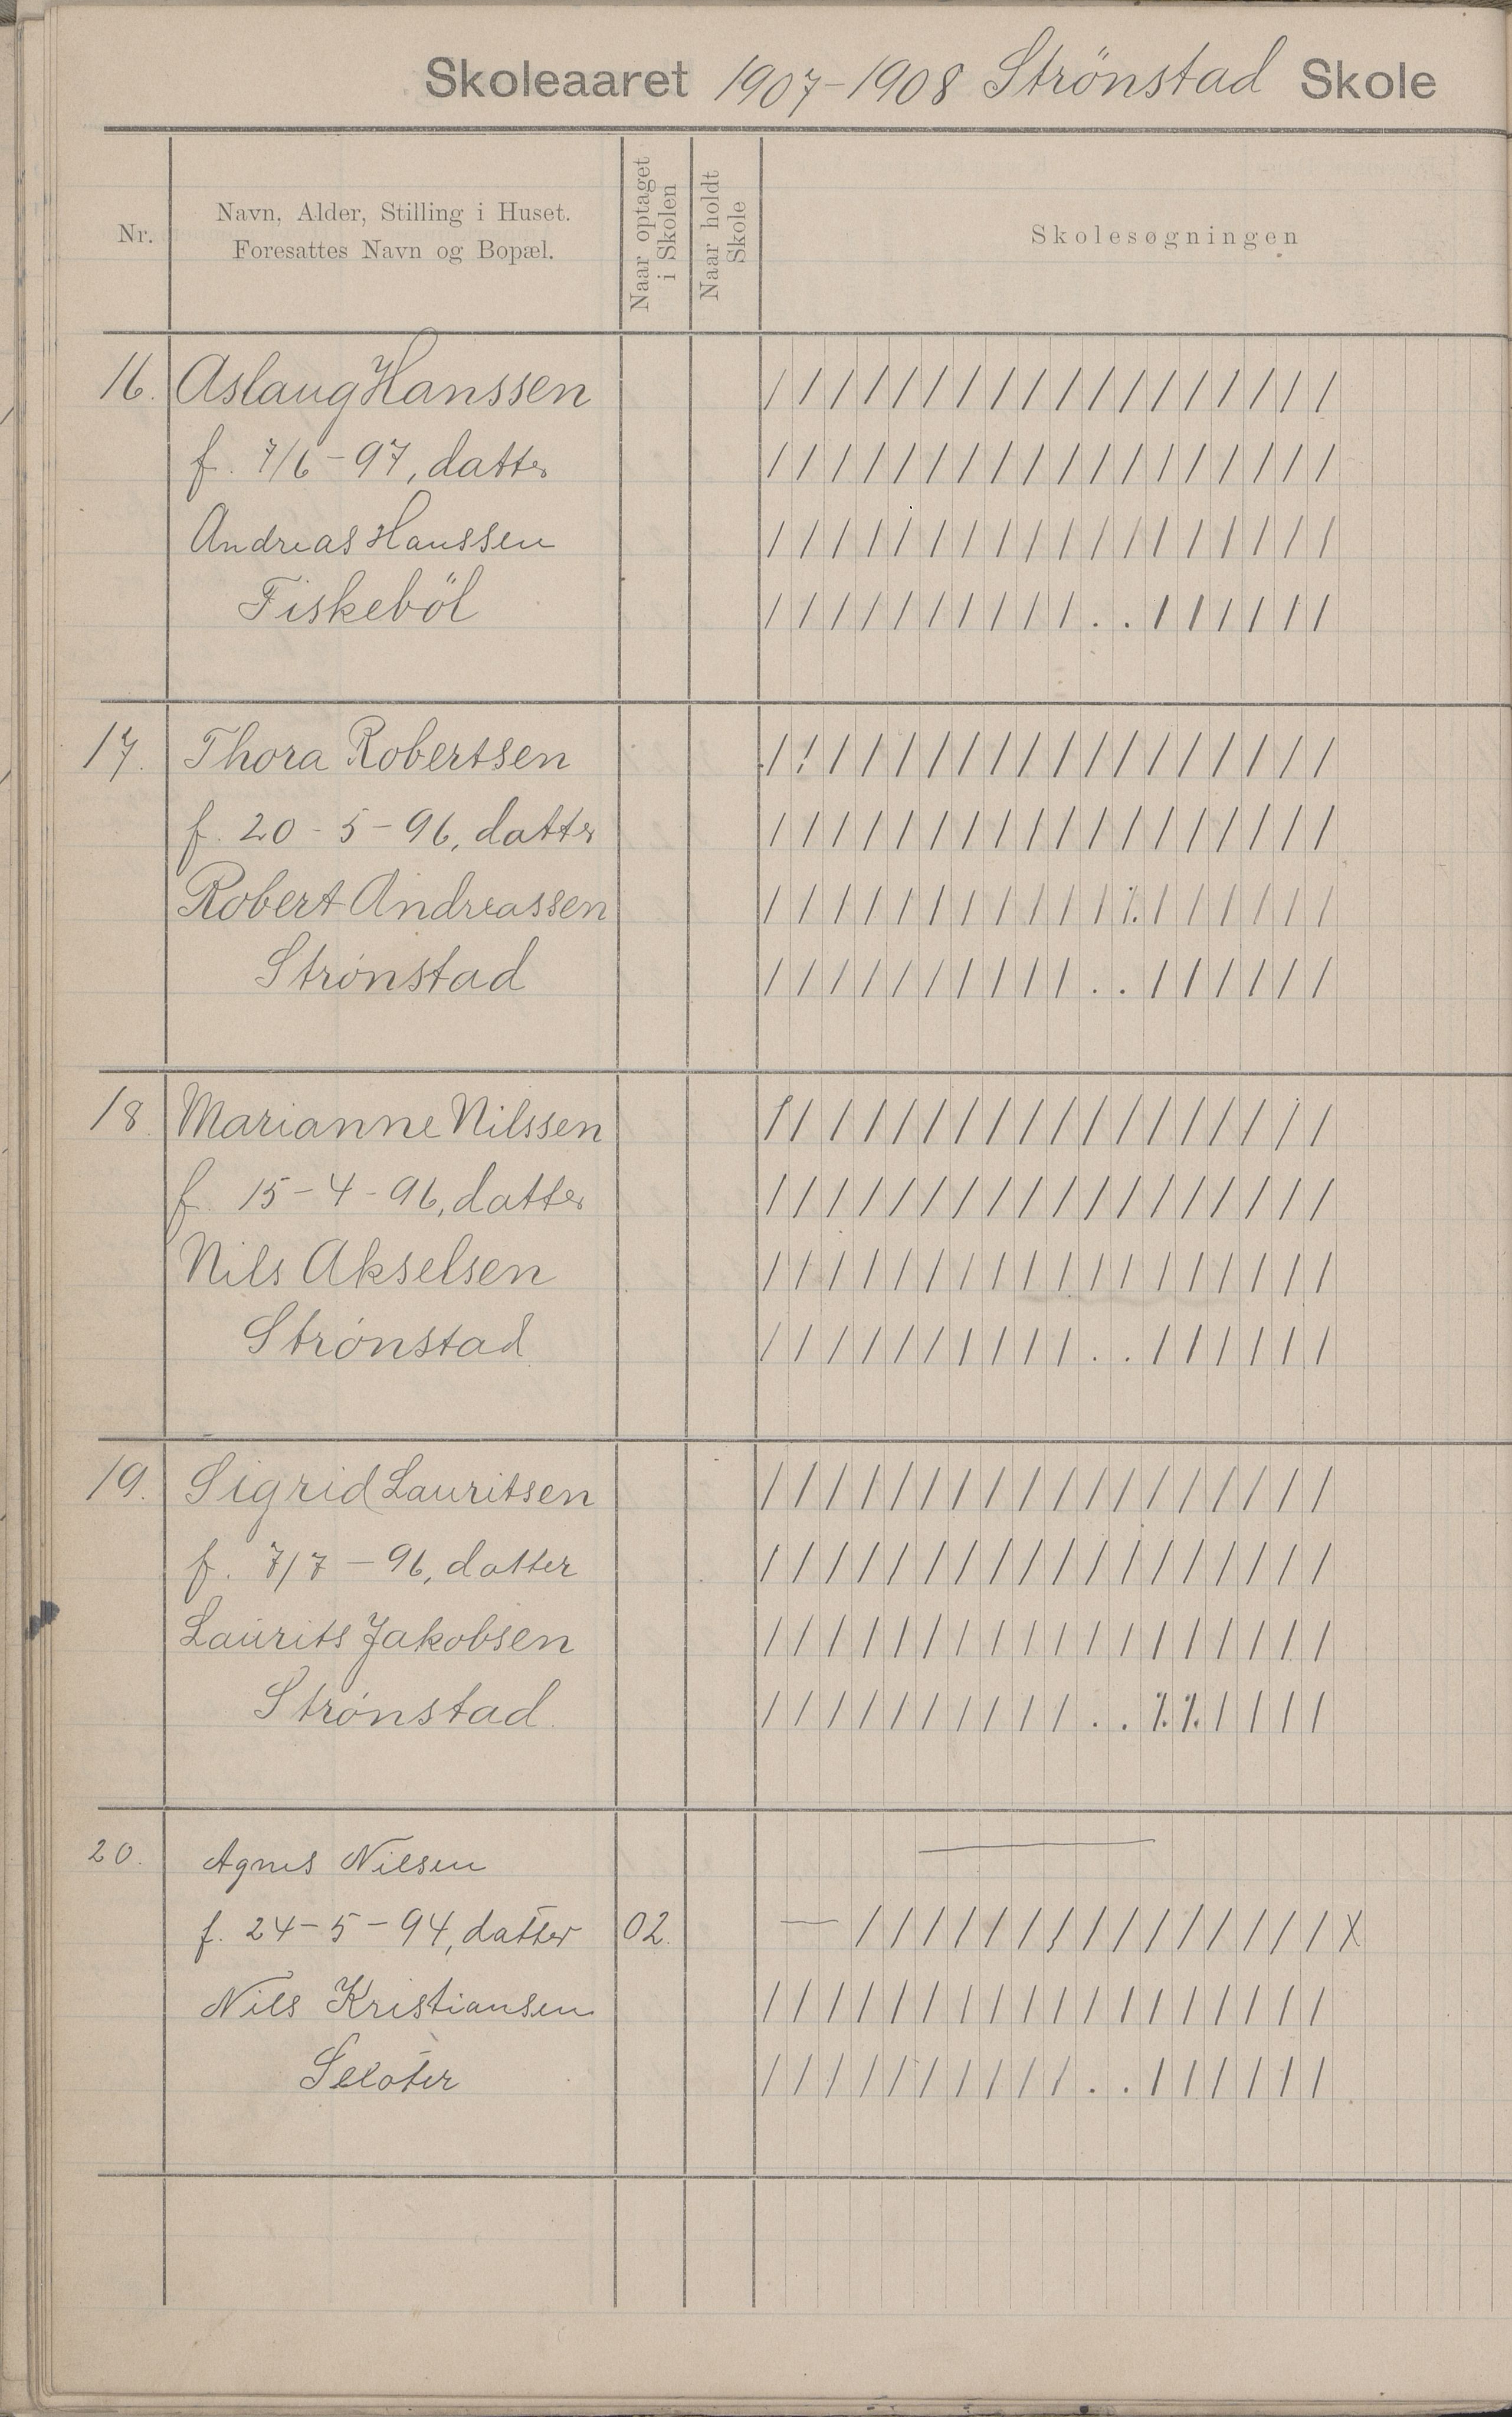 Skoleaaret 1907-1908 Strönstad Skole
Nr.
Navn, Alder, Stilling i Huset.
Foresattes Navn og Bopæl.
Naar optaget
i Skolen
Naar holdt
Skole
Skolesøgningen
16. Aslaug Hanssen / / / / / / / / / / / / / / / / / /
f. 7/6-97, datter / / / / / / / / / / / / / / / / / /
Andreas Hanssen / / / / / / / / / / / / / / / / / /
Fiskeböl / / / / / / / / / / . . / / / / / /
17. Thora Robertsen / ! / / / / / / / / / / / / / / / /
f. 20-5-96, datter / / / / / / / / / / / / / / / / / /
Robert Andreassen / / / / / / / / / / / ⁒ / / / / / /
Strönstad / / / / / / / / / / . . / / / / / /
18. Marianne Nilssen / / / / / / / / / / / / / / / / / /
f. 15-4-96, datter / / / / / / / / / / / / / / / / / /
Nils Akselsen / / / / / / / / / / / / / / / / / /
Strönstad / / / / / / / / / / . . / / / / / /
19. Sigrid Lauritsen / / / / / / / / / / / / / / / / / /
f. 7/7-96, datter / / / / / / / / / / / / / / / / / /
Laurits Jakobsen / / / / / / / / / / / / / / / / / /
Strönstad / / / / / / / / / / . . ⁒ ⁒ / / / /
20. Agnes Nilsen —
f. 24-5-94, datter 02. — / / / / / / / / / / / / / / / X
Nils Kristiansen / / / / / / / / / / / / / / / / / /
/ / / / / / / / / / . . / / / / / /